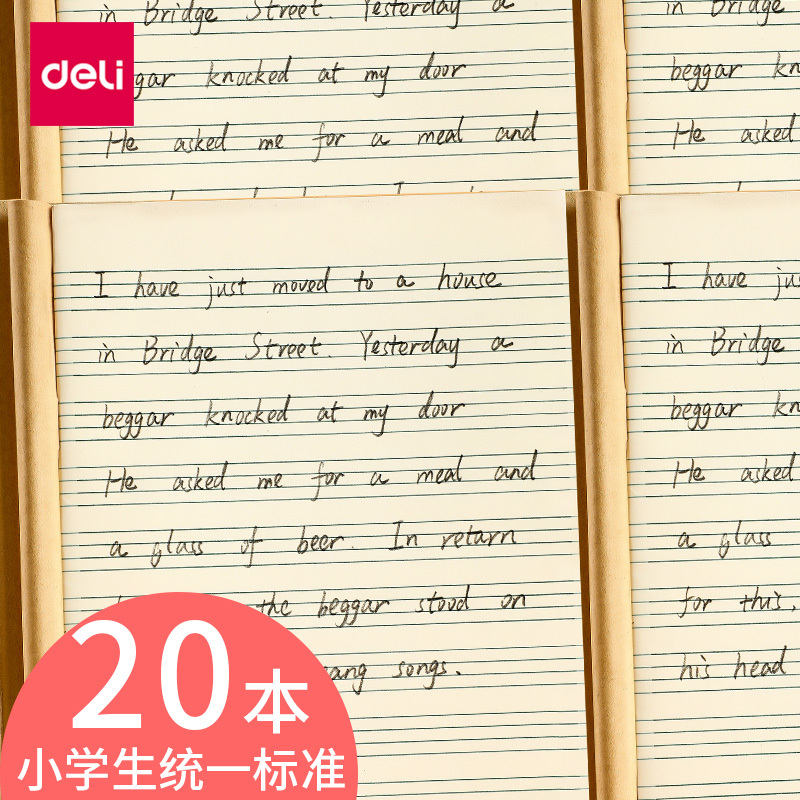 in Bridge Street. Yesterday a
deli
gar knocked at my door
He asked me for a meal and
in Bridge
beggar kn
He asked
I have just moved to a house
in Bridge Street. Yesterday a
beggar knocked at my door
He asked me for a meal and
a glass of beer. In return
the beggar stood on
sang songs.
I have jus
in Bridge
beggar kn
He asked
a glass
for this,
his head
20本
小学生统一标准